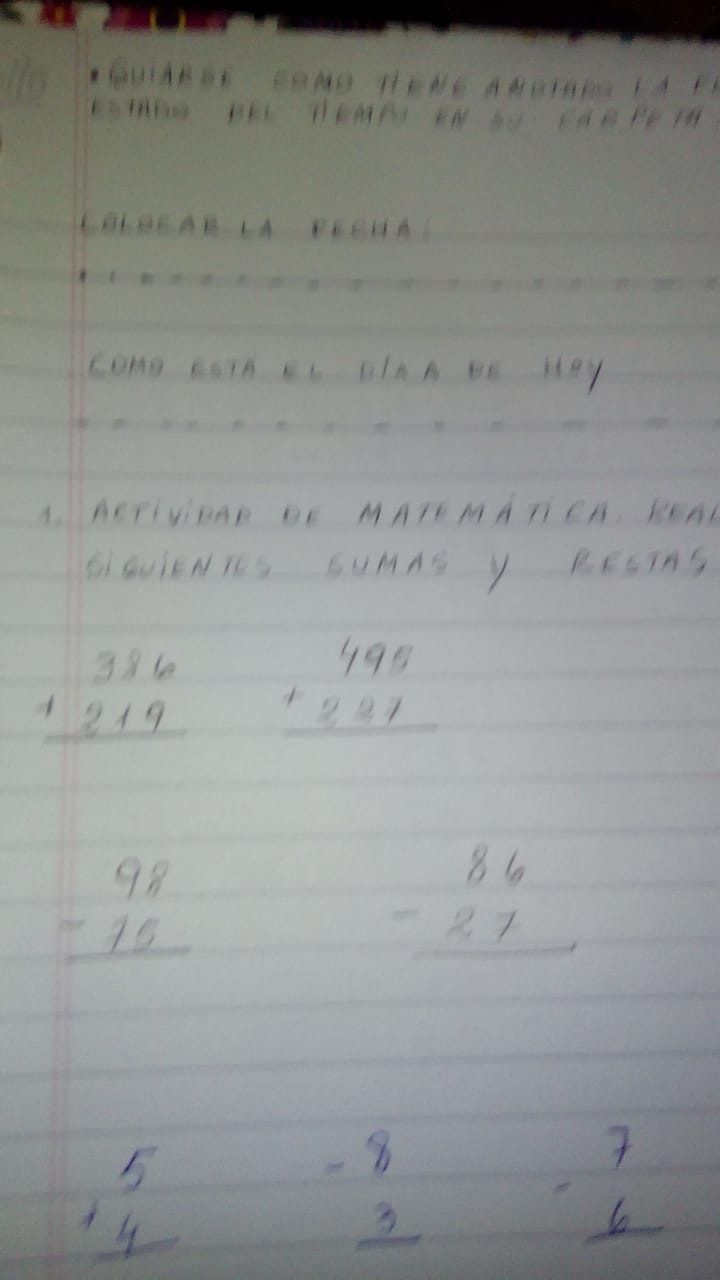 • GUIARSE COMO TIENE ANOTADO LA
ESTADO DEL TIEMPO EN SU CARPETA
COLOCAR LA FECHA:
COMO ESTÁ EL DÍA A DE HOY
1. ACTIVIDAD DE MATEMÁTICA. REAL
SIGUIENTES SUMAS y RESTAS
386 495
+ 219 + 227
98 86
- 15 - 27
5 - 8 7
+ 4 3 - 6